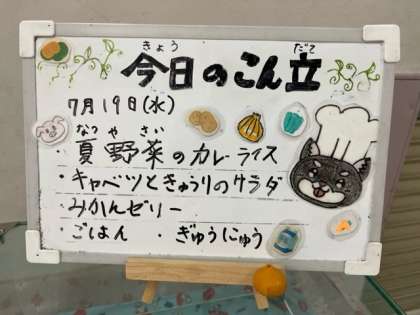 きょう だて
今日のこん立
7月19日(水)
なつ や さい
・夏野菜のカレーライス
・キャベツときゅうりのサラダ
・みかんゼリー
・ごはん ・ぎゅうにゅう